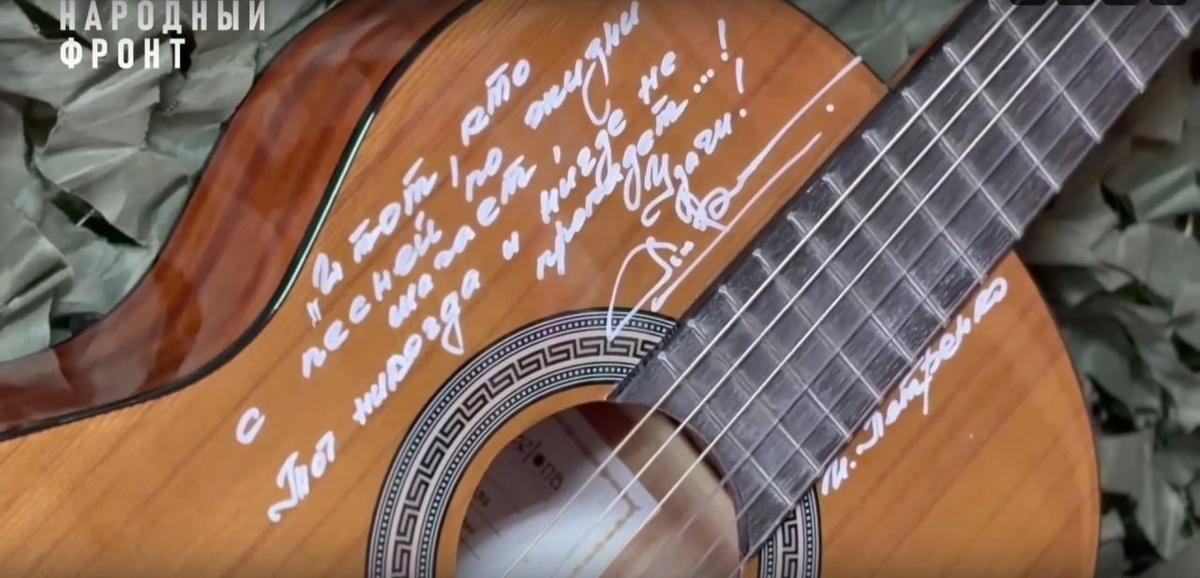 НАРОДНЫЙ
ФРОНТ
"И тот, кто
с песней по жизни
шагает,
Тот никогда и нигде не
пропадёт...!
Удачи!
И. Петренко
elona